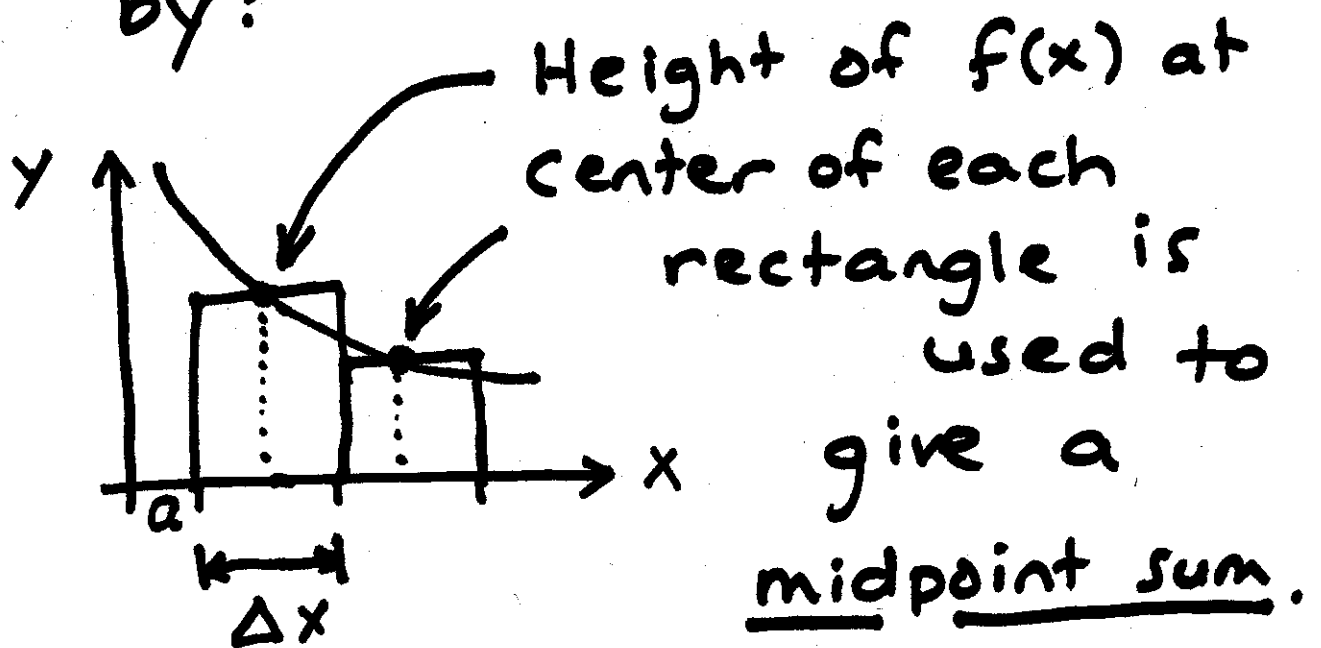 by:
Height of f(x) at
center of each
rectangle is
used to
give a
midpoint sum.
y
x
a
Δx